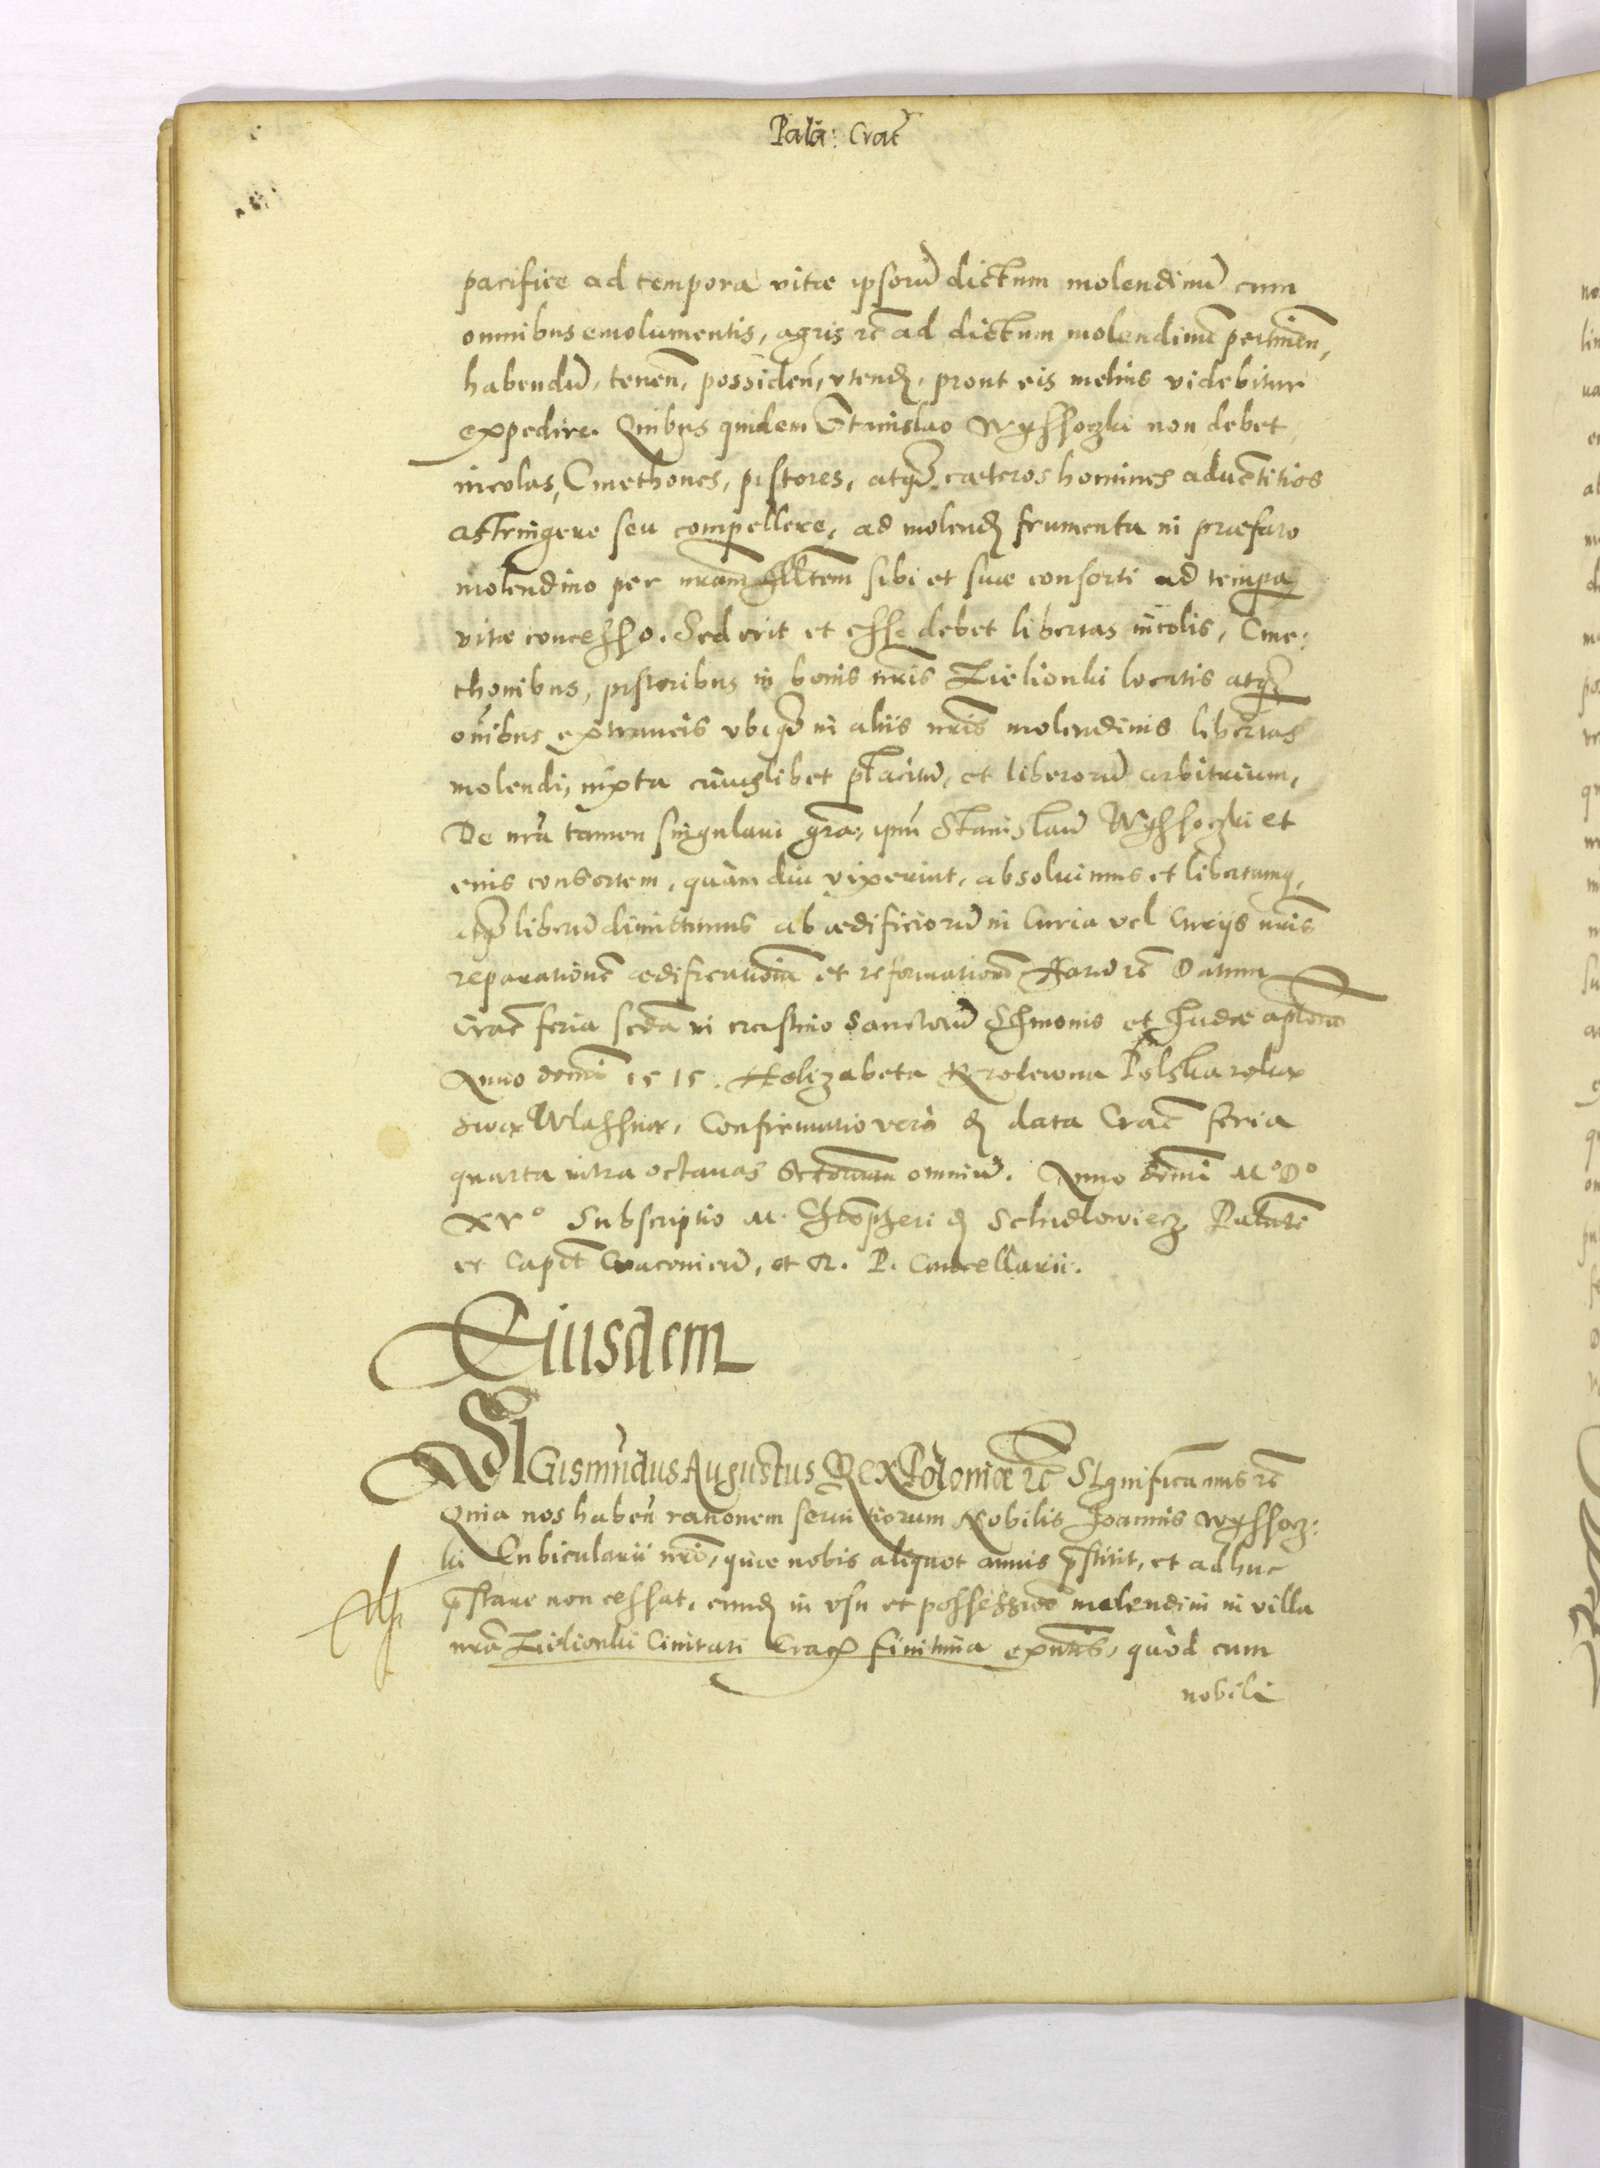 Pala: Crac
pacifice ad tempora vitæ ipsorū dictum molendinū cum
omnibus emolumentis, agris rc̄ ad dictum molendinū pertinen̄,
habendū, tenen̄, possiden̄, vtend, prout eis melius videbitur
expedire. Quibus quidem Stanislao Wyssoczki non debet
incolas, Cmethones, pistores, atq̄ cæteros homines aduētitios
astringere seu compellere, ad molend frumenta in præfato
molendino per nram sibi et suæ consorti ad tempa
vitæ concesso. Sed erit et esse debet libertas incolis, Cme:
thonibus, pistoribus in bonis nris Zielionki locatis atq̄
oībus extraneis vbiq̄ in aliis nris molendinis libertas
molendi, iuxta cuiuslibet placitū, et liberorū arbitrium,
De nrā tamen singulari gra, ipm̄ Stanislaū Wyssoczki et
eius consortem, quàm diu vixerint, absoluimus et libertamq,
atq̄ liberū dimittimus ab ædificiorū in Curia vel Curijs nris
reparationē ædificationē et reformationē Harū rc̄ Datum
Crac̄ feria scda in crastino sanctorū Symonis et Judæ aplorū
Anno domī 1515. Helizabeta Krolewna Polska ręką
swą Wlassną, Confirmatio verò data Crac̄ feria
quarta intra octauas Sctorum omniū. Anno domī M°D°
XV° Subscriptio Christopheri Schidlowiecz, Palatī
et Capit Cracovień, et R. P. Cancellarii.
Eiusdem
SIGismūdus Augustus Rex Poloniæ rc̄ Significamus rc̄
Quia nos haben̄ rationem seruitiorum Nobilis Joannis Wyssocz:
ki Cubicularii nri, quæ nobis aliquot annis p̄stitit, et adhuc
p̄stare non cessat, eund in vsu et possessiōe molendini in villa
nrā Zielionki Ciuitati Crac finitima exn̄tis, quòd cum
nobili